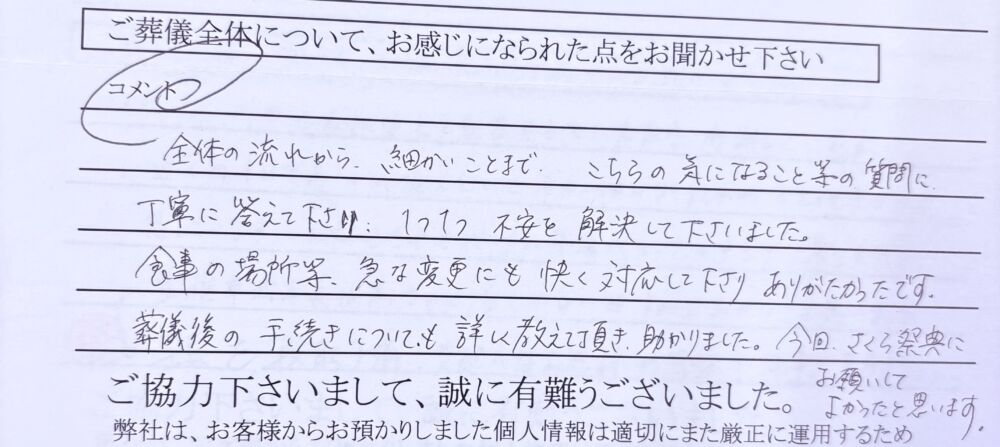 ご葬儀全体について、お感じになられた点をお聞かせ下さい
コメント
全体の流れから、細かいことまで、こちらの気になること等の質問に、
丁寧に答えて下さり、1つ1つ不安を解決して下さいました。
食事の場所等、急な変更にも快く対応して下さりありがたかったです。
葬儀後の手続きについても詳しく教えて頂き、助かりました。今回、さくら祭典に
お願いして
よかったと思います。
ご協力下さいまして、誠に有難うございました。
弊社は、お客様からお預かりしました個人情報は適切にまた厳正に運用するため